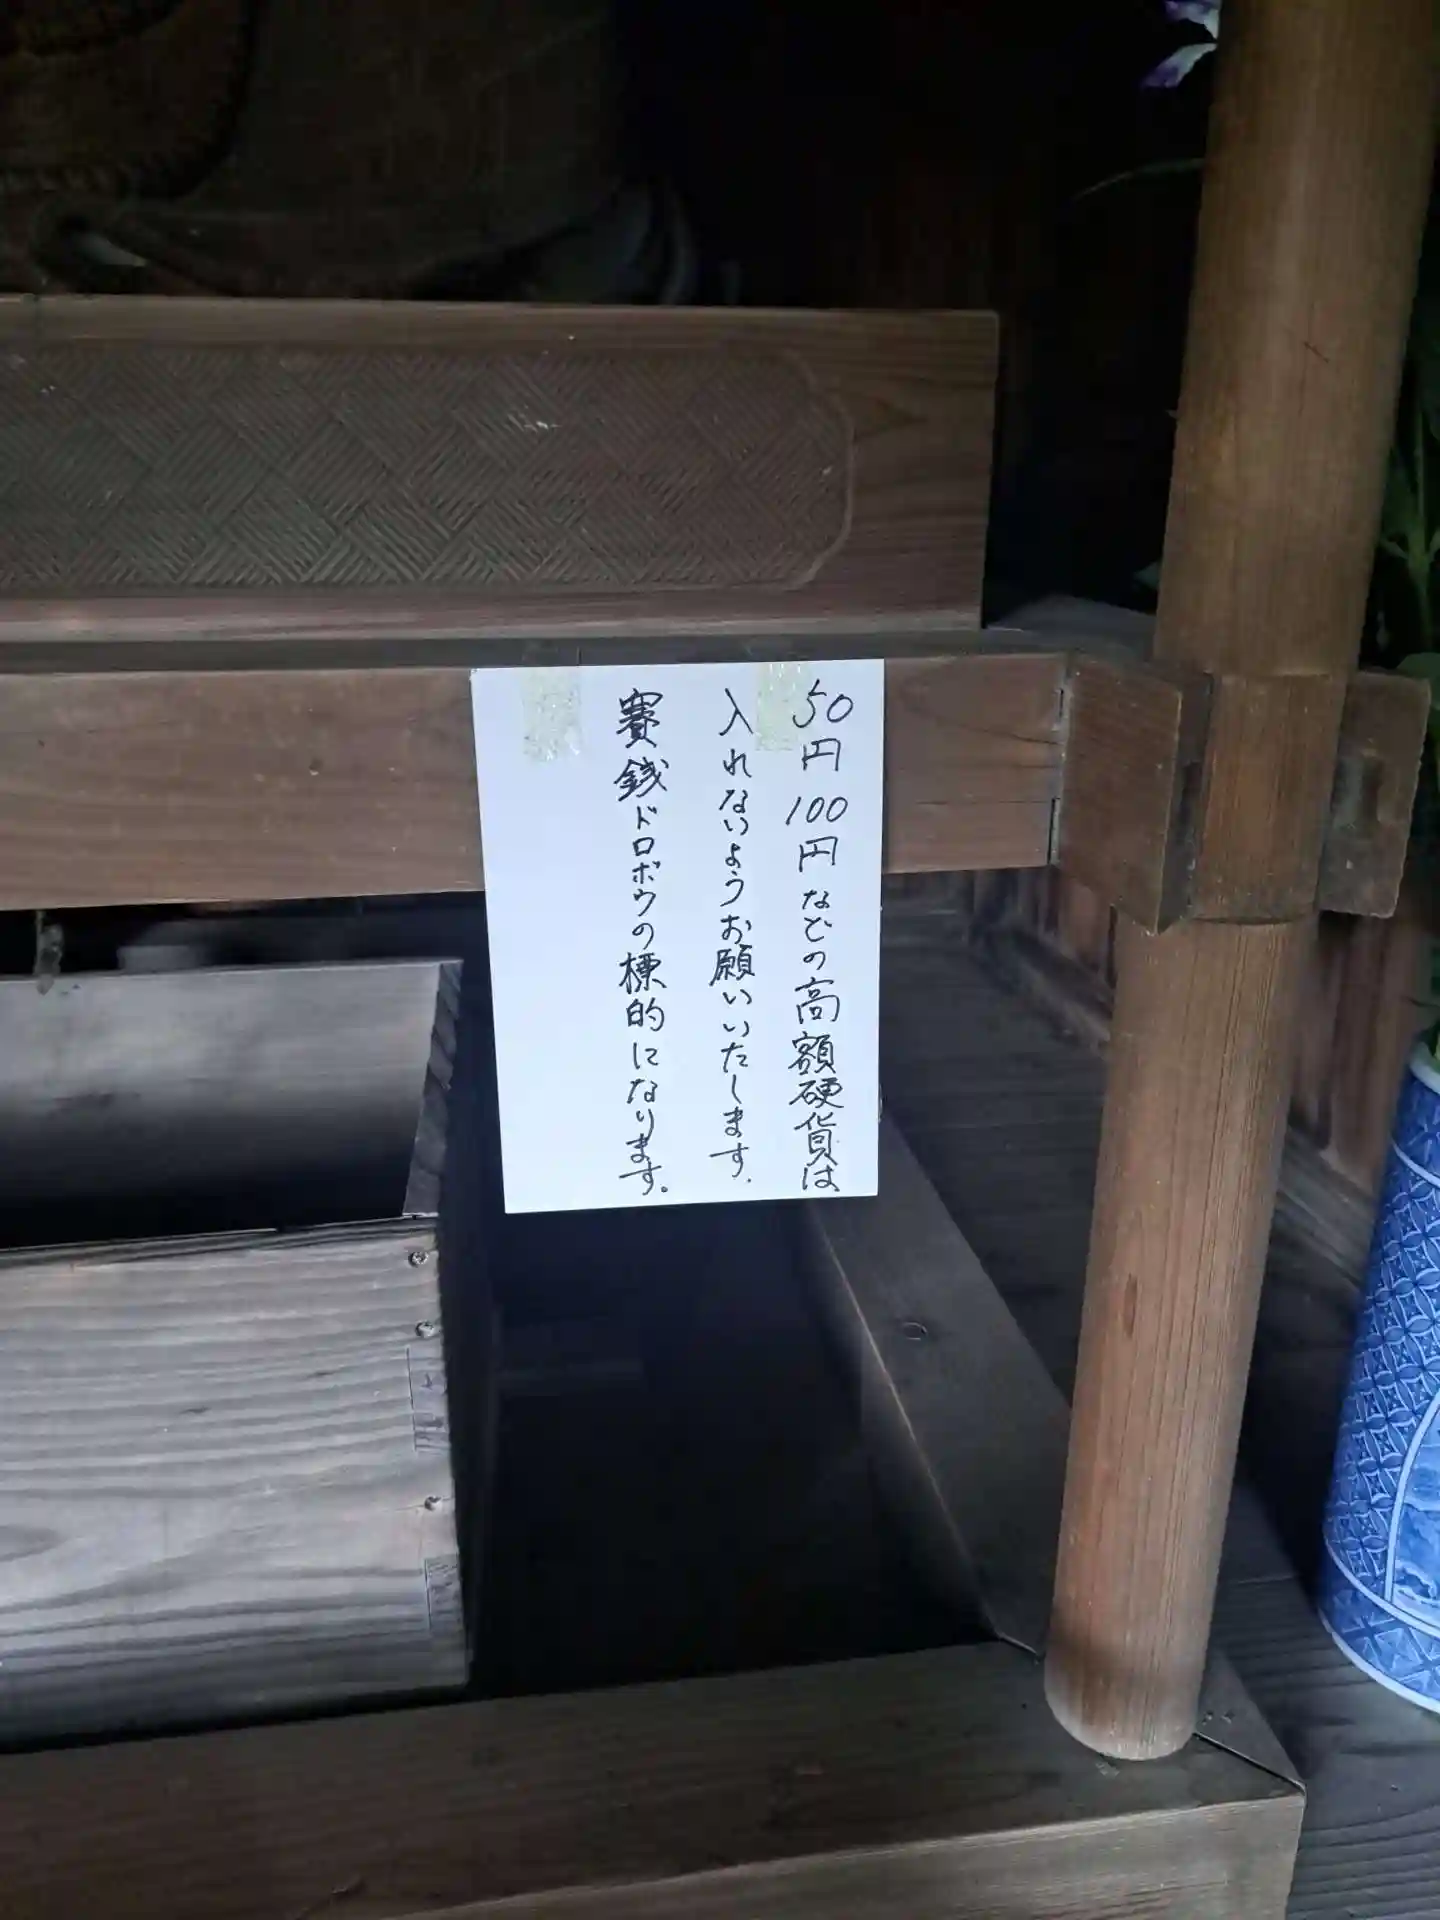 50円100円などの高額硬貨は
入れないようお願いいたします.
賽銭ドロボウの標的になります。